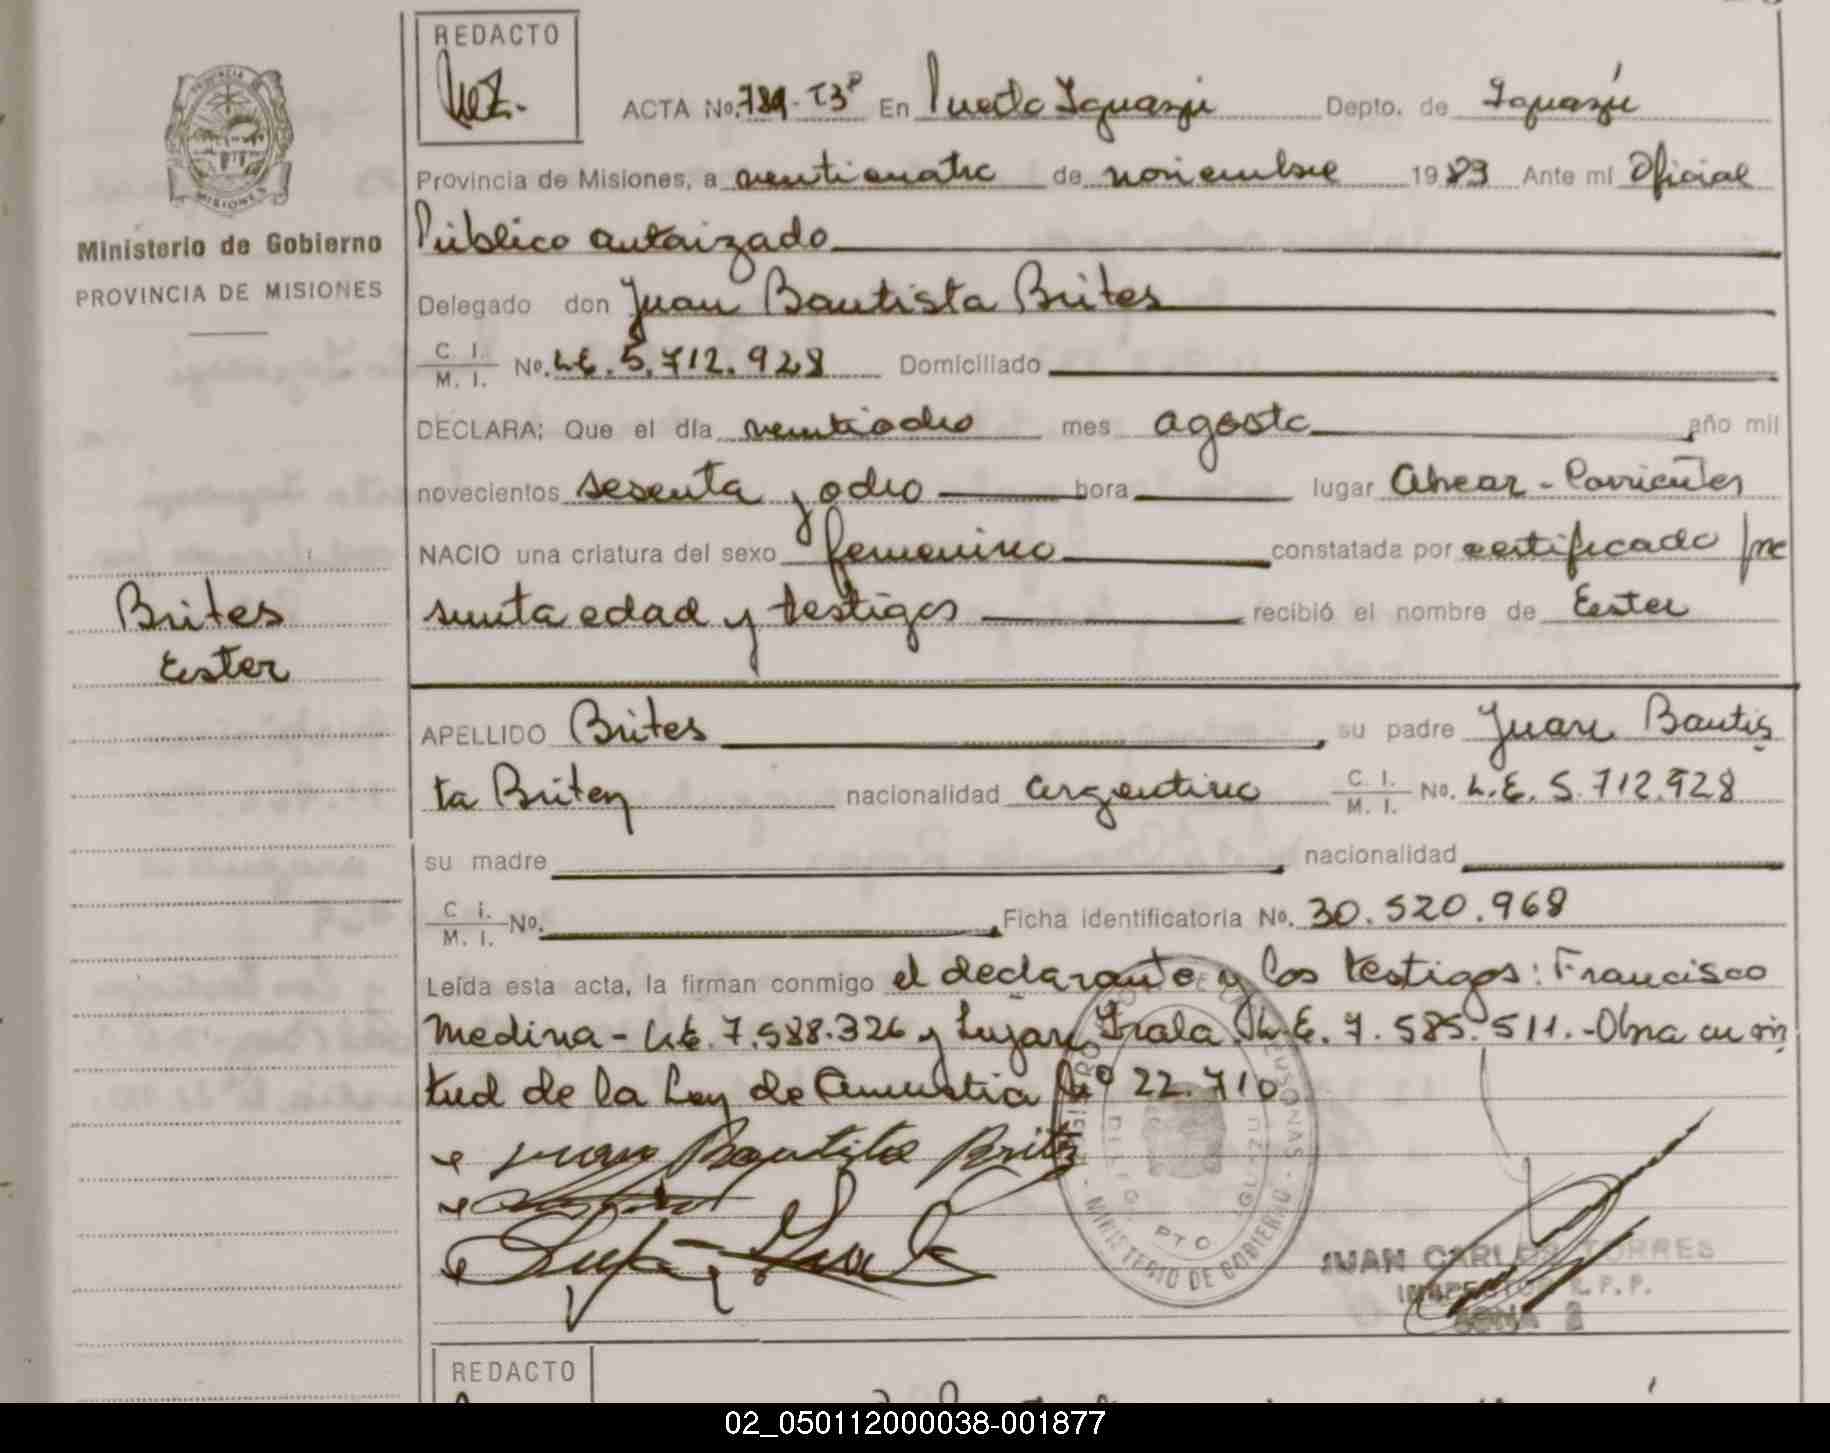 REDACTO
ACTA No. 789-T3º En Puerto Iguazú Depto. de Iguazú
PROVINCIA
MISIONES
Provincia de Misiones, a veinticuatro de noviembre 1983 Ante mí Oficial
Ministerio de Gobierno
PROVINCIA DE MISIONES
Público autorizado
Delegado don Juan Bautista Brites
C. I. M. I. No. L.E. 5.712.928 Domiciliado
DECLARA; Que el día veintiocho mes agosto año mil
novecientos sesenta y ocho hora lugar Alvear - Corrientes
NACIO una criatura del sexo femenino constatada por certificado pre
sunta edad y testigos recibió el nombre de Ester
Brites
Ester
APELLIDO Brites su padre Juan Bautis
ta Brites nacionalidad argentino C. I. M. I. No. L.E. 5.712.928
su madre nacionalidad
C. i. M. I. No. Ficha identificatoria No. 30.520.968
Leída esta acta, la firman conmigo el declarante y los testigos: Francisco
Medina - L.E. 7.588.326 y Lujan Irala L.E. 7.585.511.- Obra en vir
tud de la Ley de Amnistia Nº 22.710
Juan Bautista Brites
MINISTERIO DE GOBIERNO
PTO IGUAZU
JUAN CARLOS TORRES
INSPECTOR R.P.P.
ZONA 2
REDACTO
02_050112000038-001877